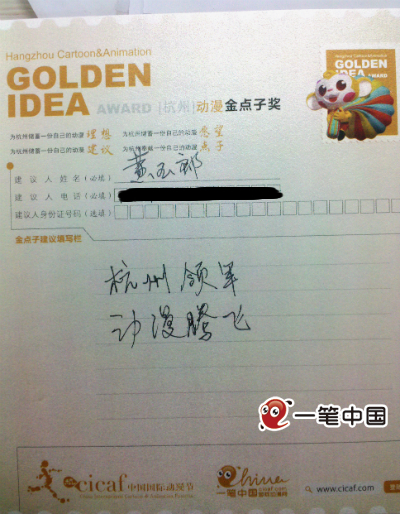 Hangzhou Cartoon&Animation
GOLDEN
IDEA AWARD [杭州]动漫金点子奖
为杭州储蓄一份自己的动漫理想 为杭州储蓄一份自己的动漫愿望
为杭州储蓄一份自己的动漫建议 为杭州奉献一份自己的动漫点子
GOLDEN
IDEA
AWARD
建议人姓名(必填) 黄玉郎
建议人电话(必填)
建议人身份证号码(选填)
金点子建议填写栏
杭州领军
动漫腾飞
一笔中国
cicaf 中国国际动漫节
China International Cartoon & Animation Festival
China
一笔中国
www.cicaf.com